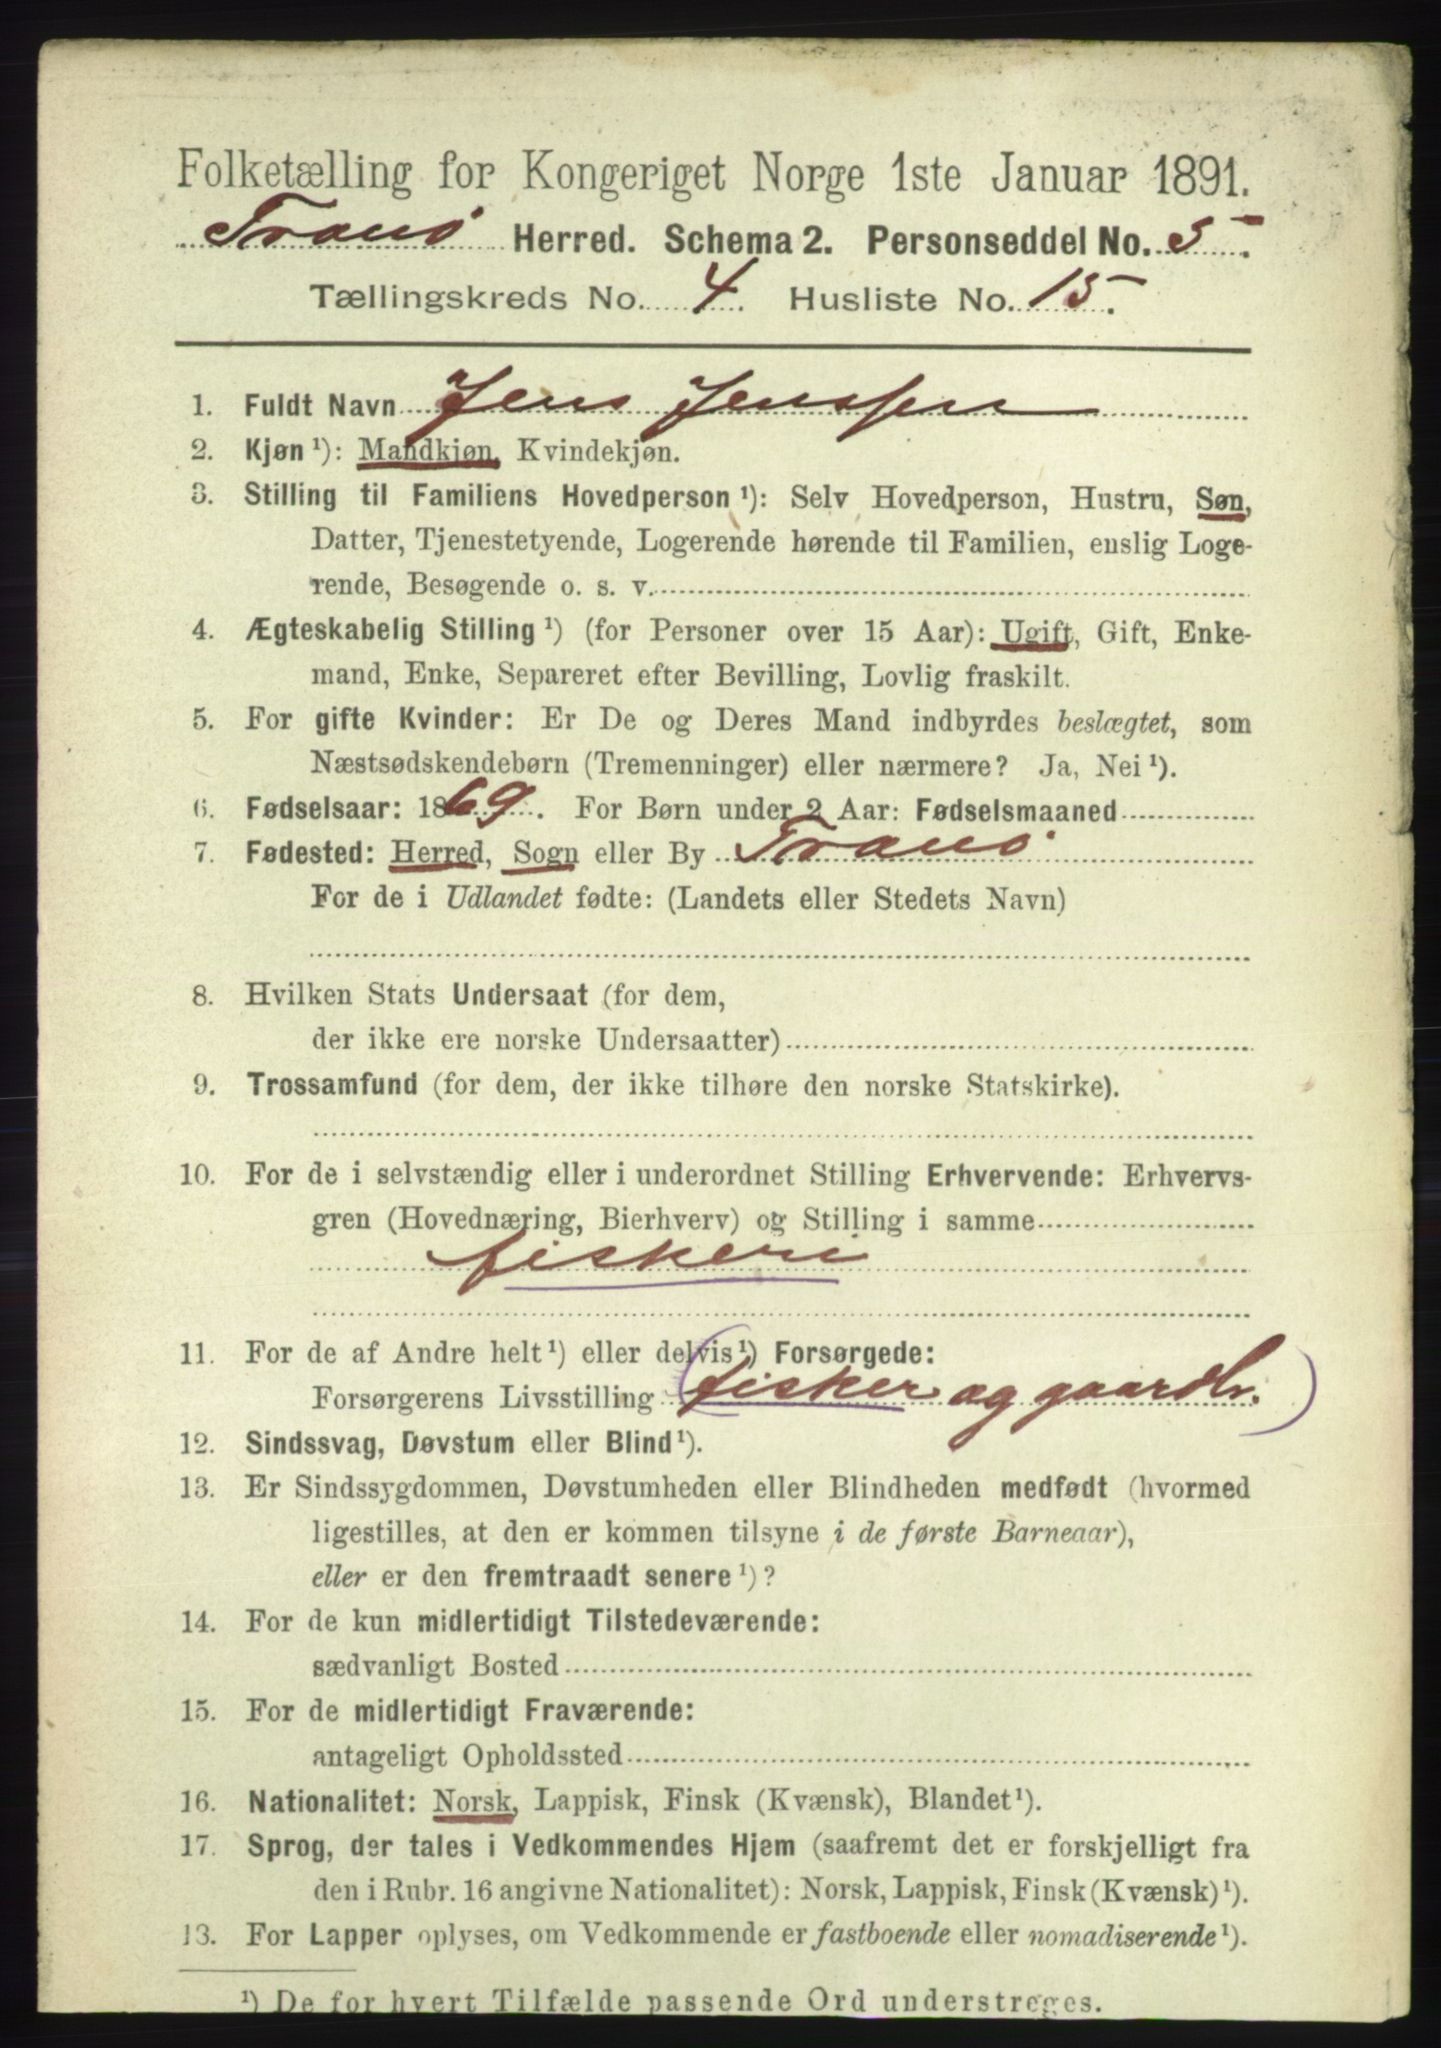 Folketælling for Kongeriget Norge 1ste Januar 1891.
Tranö Herred. Schema 2. Personseddel No. 5.
Tællingskreds No. 4. Husliste No. 15.
1. Fuldt Navn Jens Jenssen
2. Kjøn ¹): Mandkjøn, Kvindekjøn.
3. Stilling til Familiens Hovedperson ¹): Selv Hovedperson, Hustru, Søn,
Datter, Tjenestetyende, Logerende hørende til Familien, enslig Loge-
rende, Besøgende o. s. v.
4. Ægteskabelig Stilling ¹) (for Personer over 15 Aar): Ugift, Gift, Enke-
mand, Enke, Separeret efter Bevilling, Lovlig fraskilt.
5. For gifte Kvinder: Er De og Deres Mand indbyrdes beslægtet, som
Næstsødskendebørn (Tremenninger) eller nærmere? Ja, Nei ¹).
6. Fødselsaar: 1869. For Børn under 2 Aar: Fødselsmaaned
7. Fødested: Herred, Sogn eller By Tranö
For de i Udlandet fødte: (Landets eller Stedets Navn)
8. Hvilken Stats Undersaat (for dem,
der ikke ere norske Undersaatter)
9. Trossamfund (for dem, der ikke tilhøre den norske Statskirke).
10. For de i selvstændig eller i underordnet Stilling Erhvervende: Erhvervs-
gren (Hovednæring, Bierhverv) og Stilling i samme
fiskeri
11. For de af Andre helt ¹) eller delvis ¹) Forsørgede:
Forsørgerens Livsstilling (fisker og gaardbr.)
12. Sindssvag, Døvstum eller Blind ¹).
13. Er Sindssygdommen, Døvstumheden eller Blindheden medfødt (hvormed
ligestilles, at den er kommen tilsyne i de første Barneaar),
eller er den fremtraadt senere ¹)?
14. For de kun midlertidigt Tilstedeværende:
sædvanligt Bosted
15. For de midlertidigt Fraværende:
antageligt Opholdssted
16. Nationalitet: Norsk, Lappisk, Finsk (Kvænsk), Blandet ¹).
17. Sprog, der tales i Vedkommendes Hjem (saafremt det er forskjelligt fra
den i Rubr. 16 angivne Nationalitet): Norsk, Lappisk, Finsk (Kvænsk) ¹).
13. For Lapper oplyses, om Vedkommende er fastboende eller nomadiserende ¹).
¹) De for hvert Tilfælde passende Ord understreges.